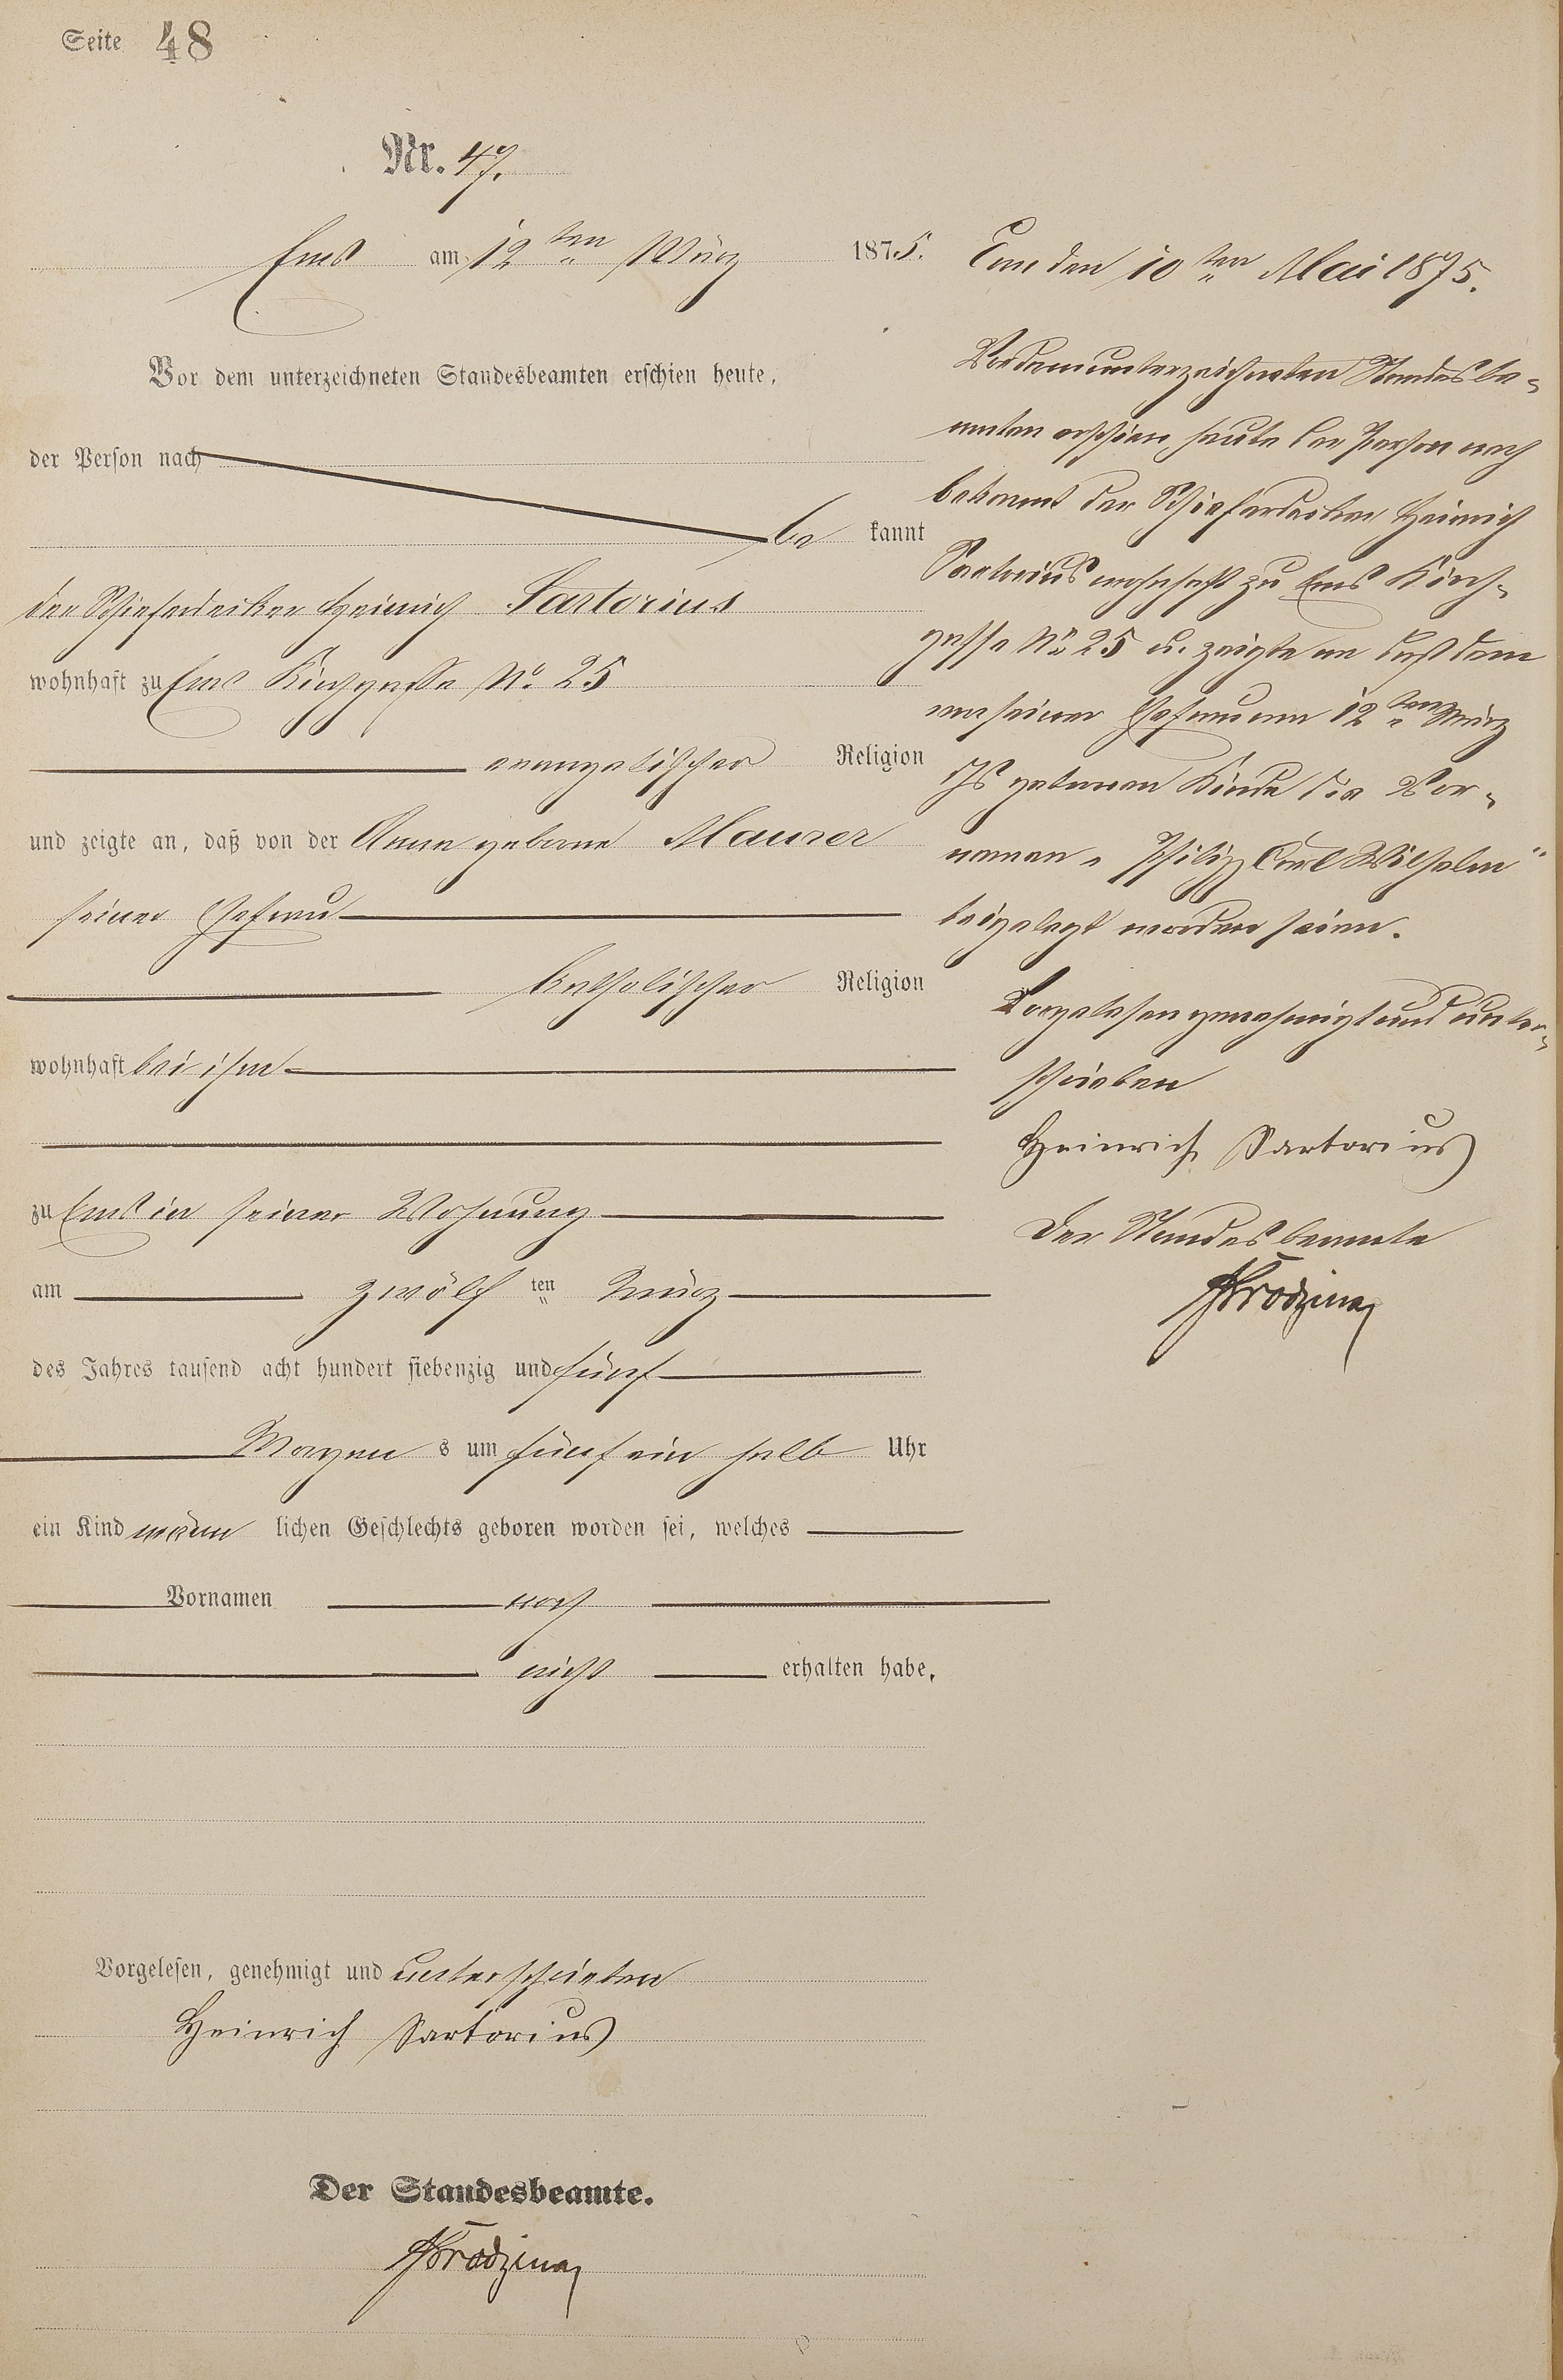 Seite 48
Nr. 47.
Ems am 12ten März 1875.
Vor dem unterzeichneten Standesbeamten erschien heute,
der Person nach
be kannt
der Schieferdecker Heinrich Sartorius
wohnhaft zu Ems Kirchgasse No. 25
evangelischer Religion
und zeigte an, daß von der Anna geborne Maurer
seiner Ehefrau
katholischer Religion
wohnhaft bei ihm
zu Ems in seiner Wohnung
am zwölf ten März
des Jahres tausend acht hundert siebenzig und fünf
Morgen s um fünf ein halb Uhr
ein Kind männ lichen Geschlechts geboren worden sei, welches
Vornamen noch
nicht erhalten habe.
Vorgelesen, genehmigt und unterschrieben
Heinrich Sartorius
Der Standesbeamte.
Ems den 10ten Mai 1875.
Vor dem unterzeichneten Standesbe-
amten erschien heute der Person nach
bekannt der Schieferdecker Heinrich
Sartorius wohnhaft zu Ems Kirch-
gasse No 25 u. zeigte an daß dem
von seiner Ehefrau am 12ten März
Js geborenen Kinde die Vor-
namen „Philipp Carl Wilhelm“
beigelegt worden seien.
Vorgelesen genehmigt und unter-
schrieben
Heinrich Sartorius
Der Standesbeamte